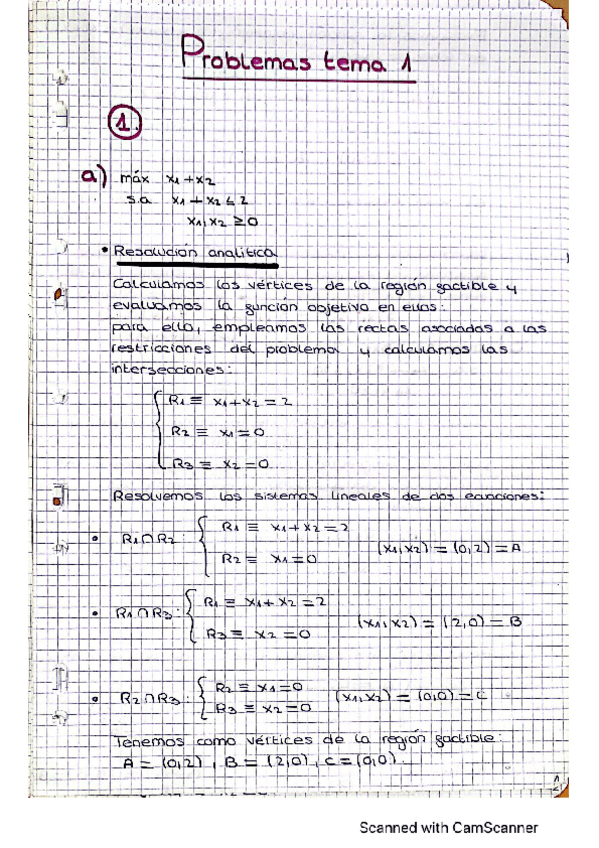 Problemas tema 1
1.
a) máx x₁+x₂
s.a x₁+x₂ ≤ 2
x₁,x₂ ≥0
• Resolución analítica
Calculamos los vértices de la región factible y
evaluamos la función objetivo en ellos:
para ello, empleamos las rectas asociadas a las
restricciones del problema y calculamos las
intersecciones:
R₁ ≡ x₁+x₂ = 2
R₂ ≡ x₁=0
R₃ ≡ x₂ =0
Resolvemos los sistemas lineales de dos ecuaciones:
• R₁∩R₂: { R₁ ≡ x₁+x₂=2
R₂ ≡ x₁=0 (x₁,x₂) = (0,2) = A
• R₁∩R₃: { R₁ ≡ x₁+x₂ =2
R₃ ≡ x₂ =0 (x₁,x₂) = (2,0) = B
• R₂∩R₃: { R₂ ≡ x₁=0
R₃ ≡ x₂=0 (x₁,x₂) = (0,0) = C
Tenemos como vértices de la región factible:
A = (0,2), B = (2,0), C = (0,0).
Scanned with CamScanner